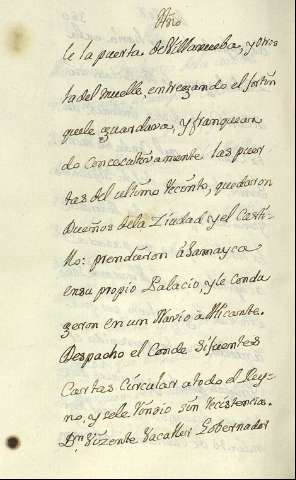 Año
le la puerta de Villanueba, y otros
ta del muelle, entregando el fortin
que le guardava, y franquean
do consecutivamente las puer
tas del ultimo Recinto, quedaron
Dueños dela Ziudad, y el Casti-
llo: prendieron á Samayca
en su propio Palacio, y le Condu
geron en un Navio a Alicante.
Despacho el Conde Sifuentes
Cartas Circular a todo el Rey-
no, y se le rindio sin Recistencia.
Dn Vizente Gobernador